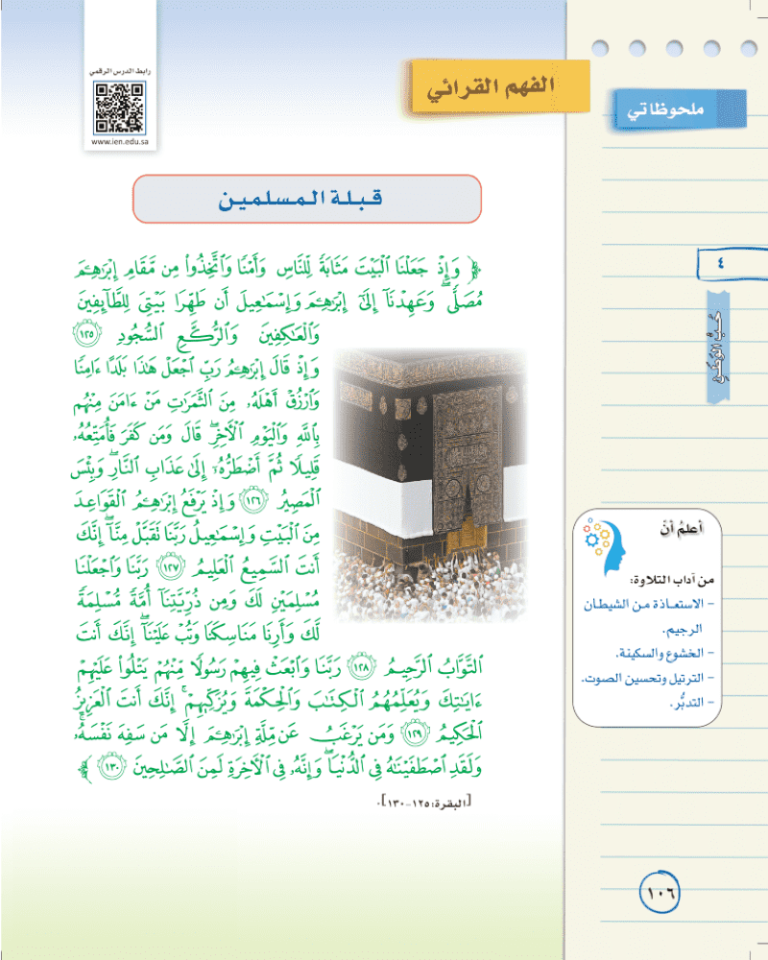 رابط الدرس الرقمي
www.ien.edu.sa
الفهم القرائي
ملحوظاتي
قبلة المسلمين
﴿ وَإِذْ جَعَلْنَا ٱلْبَيْتَ مَثَابَةً لِّلنَّاسِ وَأَمْنًا وَٱتَّخِذُوا۟ مِن مَّقَامِ إِبْرَٰهِـۧمَ
مُصَلًّى ۖ وَعَهِدْنَآ إِلَىٰٓ إِبْرَٰهِـۧمَ وَإِسْمَـٰعِيلَ أَن طَهِّرَا بَيْتِىَ لِلطَّآئِفِينَ
وَٱلْعَـٰكِفِينَ وَٱلرُّكَّعِ ٱلسُّجُودِ ١٢٥
وَإِذْ قَالَ إِبْرَٰهِـۧمُ رَبِّ ٱجْعَلْ هَـٰذَا بَلَدًا ءَامِنًا
وَٱرْزُقْ أَهْلَهُۥ مِنَ ٱلثَّمَرَٰتِ مَنْ ءَامَنَ مِنْهُم
بِٱللَّهِ وَٱلْيَوْمِ ٱلْـَٔاخِرِ ۖ قَالَ وَمَن كَفَرَ فَأُمَتِّعُهُۥ
قَلِيلًا ثُمَّ أَضْطَرُّهُۥٓ إِلَىٰ عَذَابِ ٱلنَّارِ ۖ وَبِئْسَ
ٱلْمَصِيرُ ١٢٦ وَإِذْ يَرْفَعُ إِبْرَٰهِـۧمُ ٱلْقَوَاعِدَ
مِنَ ٱلْبَيْتِ وَإِسْمَـٰعِيلُ رَبَّنَا تَقَبَّلْ مِنَّآ ۖ إِنَّكَ
أَنتَ ٱلسَّمِيعُ ٱلْعَلِيمُ ١٢٧ رَبَّنَا وَٱجْعَلْنَا
مُسْلِمَيْنِ لَكَ وَمِن ذُرِّيَّتِنَآ أُمَّةً مُّسْلِمَةً
لَّكَ وَأَرِنَا مَنَاسِكَنَا وَتُبْ عَلَيْنَآ ۖ إِنَّكَ أَنتَ
ٱلتَّوَّابُ ٱلرَّحِيمُ ١٢٨ رَبَّنَا وَٱبْعَثْ فِيهِمْ رَسُولًا مِّنْهُمْ يَتْلُوا۟ عَلَيْهِمْ
ءَايَـٰتِكَ وَيُعَلِّمُهُمُ ٱلْكِتَـٰبَ وَٱلْحِكْمَةَ وَيُزَكِّيهِمْ ۚ إِنَّكَ أَنتَ ٱلْعَزِيزُ
ٱلْحَكِيمُ ١٢٩ وَمَن يَرْغَبُ عَن مِّلَّةِ إِبْرَٰهِـۧمَ إِلَّا مَن سَفِهَ نَفْسَهُۥ ۚ
وَلَقَدِ ٱصْطَفَيْنَـٰهُ فِى ٱلدُّنْيَا ۖ وَإِنَّهُۥ فِى ٱلْـَٔاخِرَةِ لَمِنَ ٱلصَّـٰلِحِينَ ١٣٠ ﴾
[البقرة: ١٢٥-١٣٠].
٤
حُبُّ الوَطَنِ
أعلمُ أنّ
من آداب التلاوة:
- الاستعاذة من الشيطان
الرجيم.
- الخشوع والسكينة.
- الترتيل وتحسين الصوت.
- التدبُّر.
١٠٦